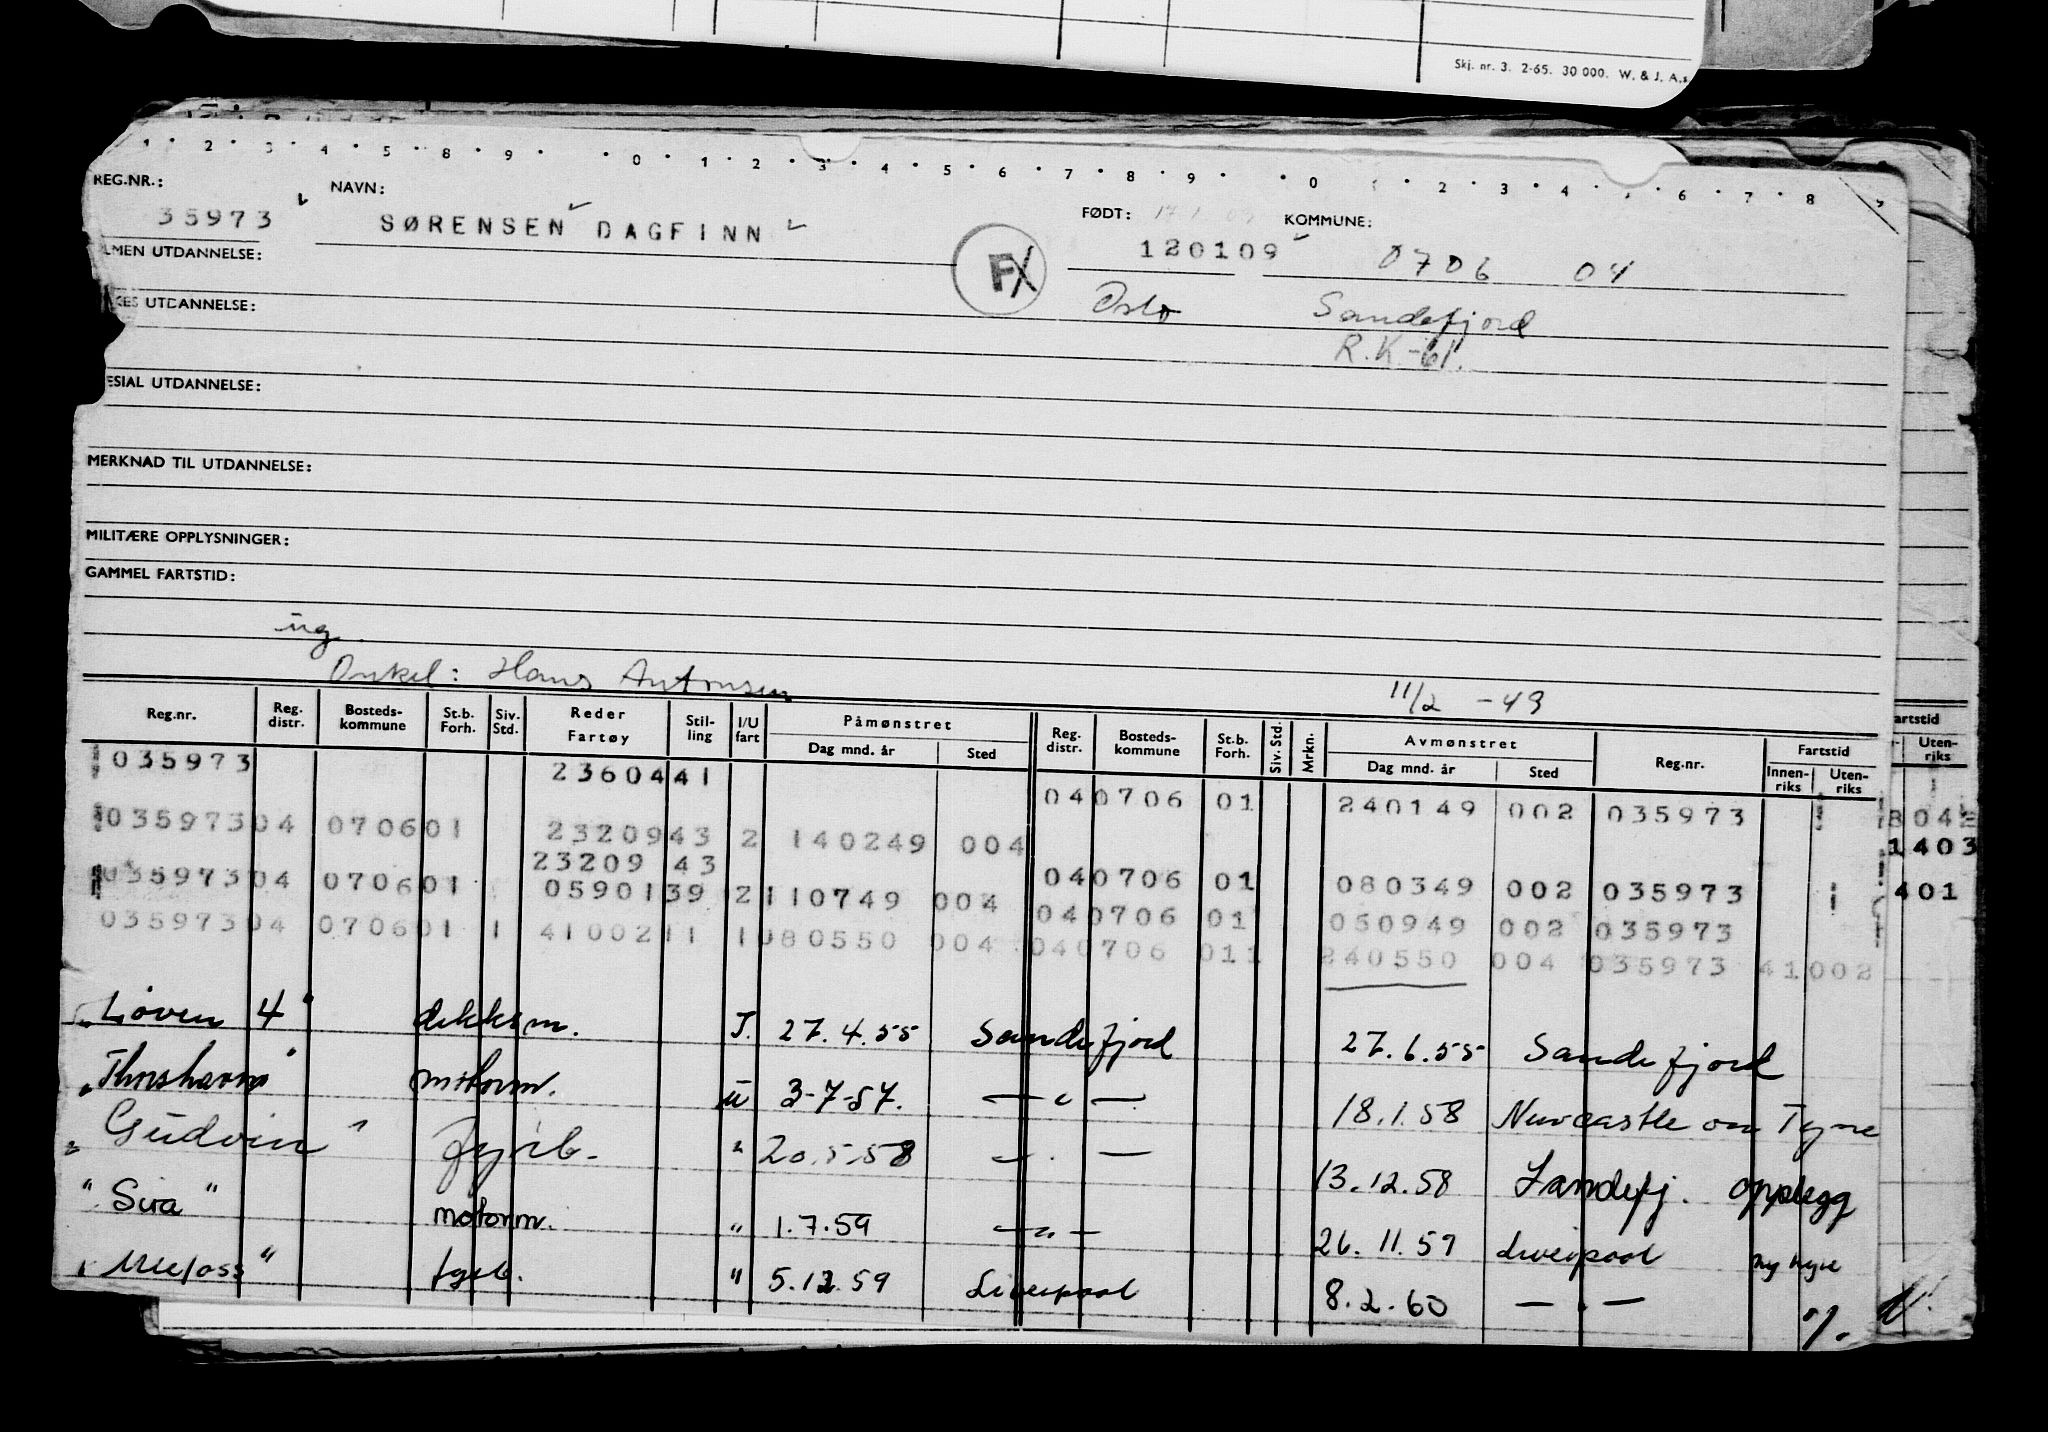 Skj. nr. 3. 2-65. 30 000. W. & J. A.s
1 · 2 · 3 · 4 · 5 · 8 · 9 · · 0 · 1 · 2 · 3 · 4 · 5 · 6 · 7 · 8 · 9 · · 0 · · 2 · 3 · 4 · · 6 · 7 · 8
REG.NR.: NAVN: FØDT: KOMMUNE:
35973 SØRENSEN DAGFINN FX 120109 0706 04
LMEN UTDANNELSE:
Oslo Sandefjord
GES UTDANNELSE:
R.K.-61.
ESIAL UTDANNELSE:
MERKNAD TIL UTDANNELSE:
MILITÆRE OPPLYSNINGER:
GAMMEL FARTSTID:
ug.
Onkel: Hans Antonsen 11/2 -49
Reg.nr. Reg. distr. Bosteds-kommune St.b. Forh. Siv. Std. Reder Fartøy Stil-ling I/U fart Påmønstret Dag mnd. år Sted Reg. distr. Bosteds-kommune St.b. Forh. Siv. Std. Mrkn. Avmønstret Dag mnd. år Sted Reg.nr. Fartstid Innen-riks Uten-riks
artstid Uten-riks
035973 2360441 040706 01 240149 002 035973
03597304 070601 2320943 2 140249 004
23209 43 040706 01 080349 002 035973
03597304 070601 0590139 2 110749 004 040706 01 050949 002 035973
03597304 070601 1 4100211 1 080550 004 040706 011 240550 004 035973 41002
8042
1403
401
"Løven 4" dekksm. I. 27.4.55 Sandefjord 27.6.55 Sandefjord
"Thorshavn" motorm. u 3-7-57. — " — 18.1.58 Newcastle on Tyne
"Gudvin" fyrb. " 20.5.58 — " — 13.12.58 Sandefj. opplegg
"Sira" motorm. " 1.7.59 — " — 26.11.59 Liverpool ny hyre
fyrb. " 5.12.59 Liverpool 8.2.60 — " —